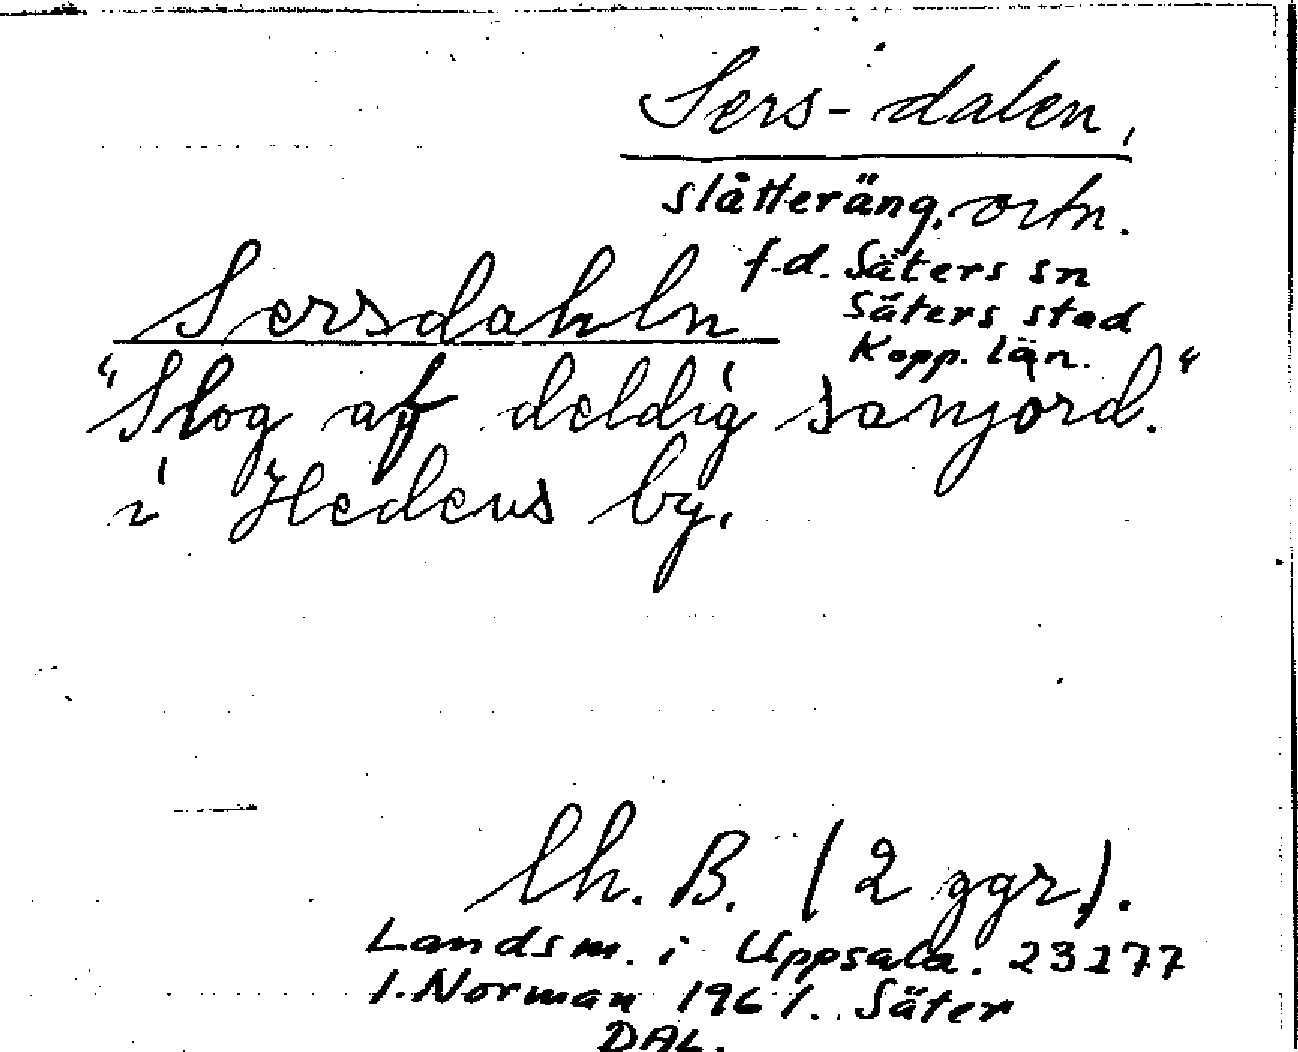 Sers-dalen,
slåtteräng, ortn.
f.d. Säters sn
Säters stad
Kopp. län.
Sersdahln
"Slog af deldig sanjord."
i Hedens by.
lh. B. (2 ggr.).
Landsm. i Uppsala. 23277
I. Norman 1961. Säter
DAL.